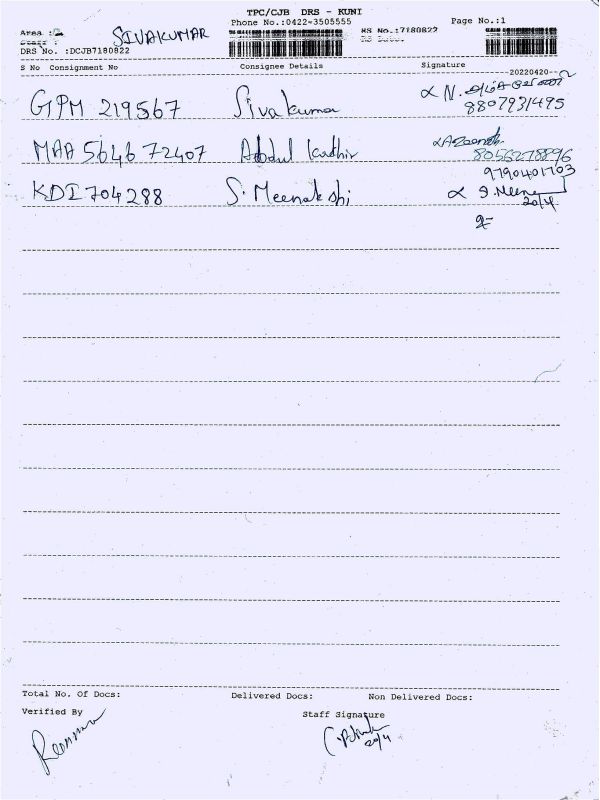 TPC/CJB DRS - KUNI
Phone No.:0422-3505555 Page No.:1
Area : SIVAKUMAR RS No.:7180822
DRS No. :DCJB7180822
S No Consignment No Consignee Details Signature
--20220420--
GPM 219567 Sivakumar N.
8807931495
MAA 564672407 Abdul Kadhir
8056278896
9790401703
KDI 704288 S. Meenakshi S. Meena
20/4
2-
Total No. Of Docs: Delivered Docs: Non Delivered Docs:
Verified By Staff Signature
20/4